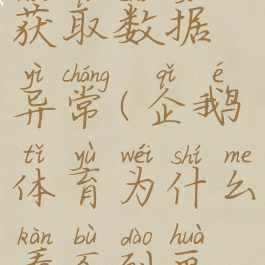 获取数据
yì cháng qǐ é
异常(企鹅
tǐ yù wéi shí me
体育为什么
kàn bù dào huà
看不到画